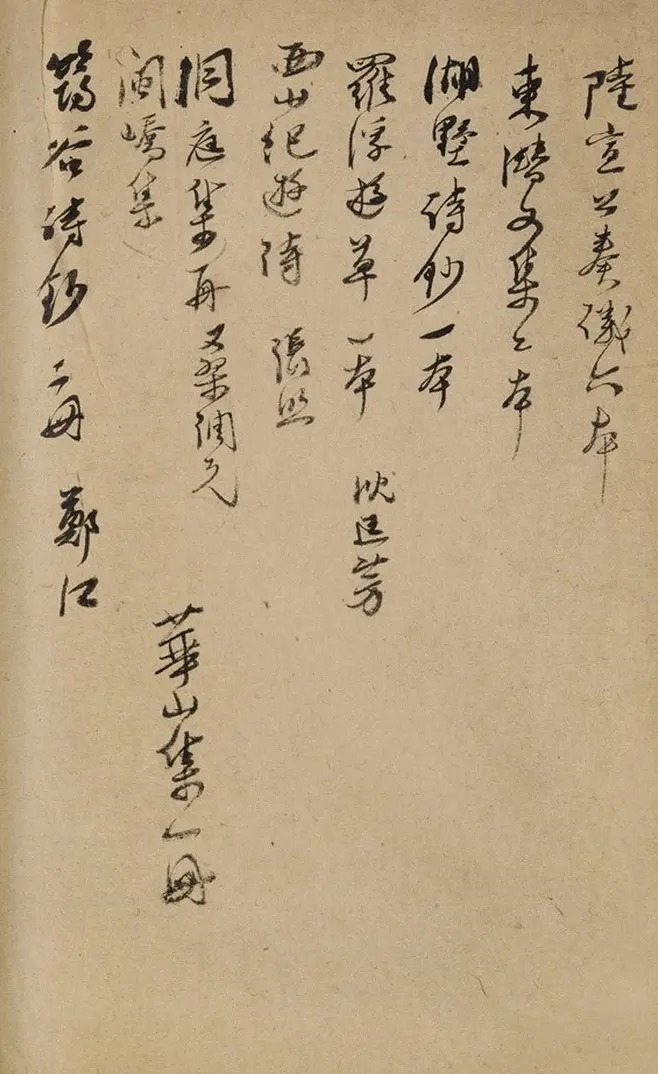 陸宣公奏議六本
東潛文集二本
湖墅詩鈔一本
羅浮遊草一本 沈廷芳
西山紀遊詩 張照
洞庭集 再 又桑調元
華山集一冊
閩嶠集
筠谷詩鈔二冊 鄭江